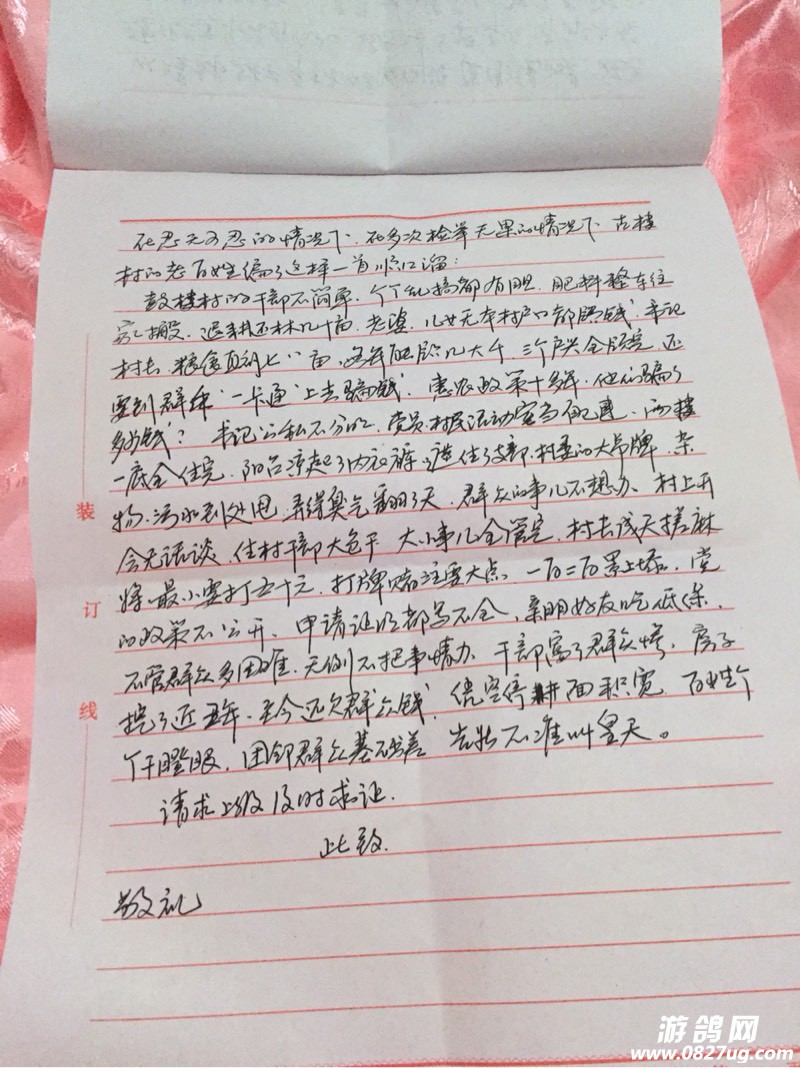 在忍无可忍的情况下、在多次检举无果的情况下 古楼
村的老百姓编了这样一首顺口溜：
鼓楼村的干部不简单，个个乱搞都有胆，肥料整车往
家搬，退耕还林几十亩，老婆、儿女无本村户口都赔钱，书记
村长 粮食直补七八亩，每年 几大千，三个 全 ，还
要到群众“一卡通”上去骗钱，惠农政策十多年，他们骗了
多少钱？书记公私不分明，党员、村民活动室当自己 ，两楼
一底全住完，阳台凉起了内衣裤，遮住了支部、村委的大吊牌，杂
物、污水到处甩，弄得臭气翻了天，群众的事儿不想办、村上开
会无话谈，住村干部大包干 大小事儿全管完，村长成天搓麻
将，最小要打五十元，打牌赌注要大点，一百二百累上添，党
的政策不公开、申请证明都写不全，亲朋好友吃低保，
不管群众多困难，无例不把事情办，干部富了群众 ，房子
挖了近五年，至今还欠群众钱， 面积宽，百姓个
个干瞪眼，团邻群众基础差 告状不准叫皇天。
请求上级及时求证.
此致.
敬礼
装
订
线
游鸽网
www.0827ug.com